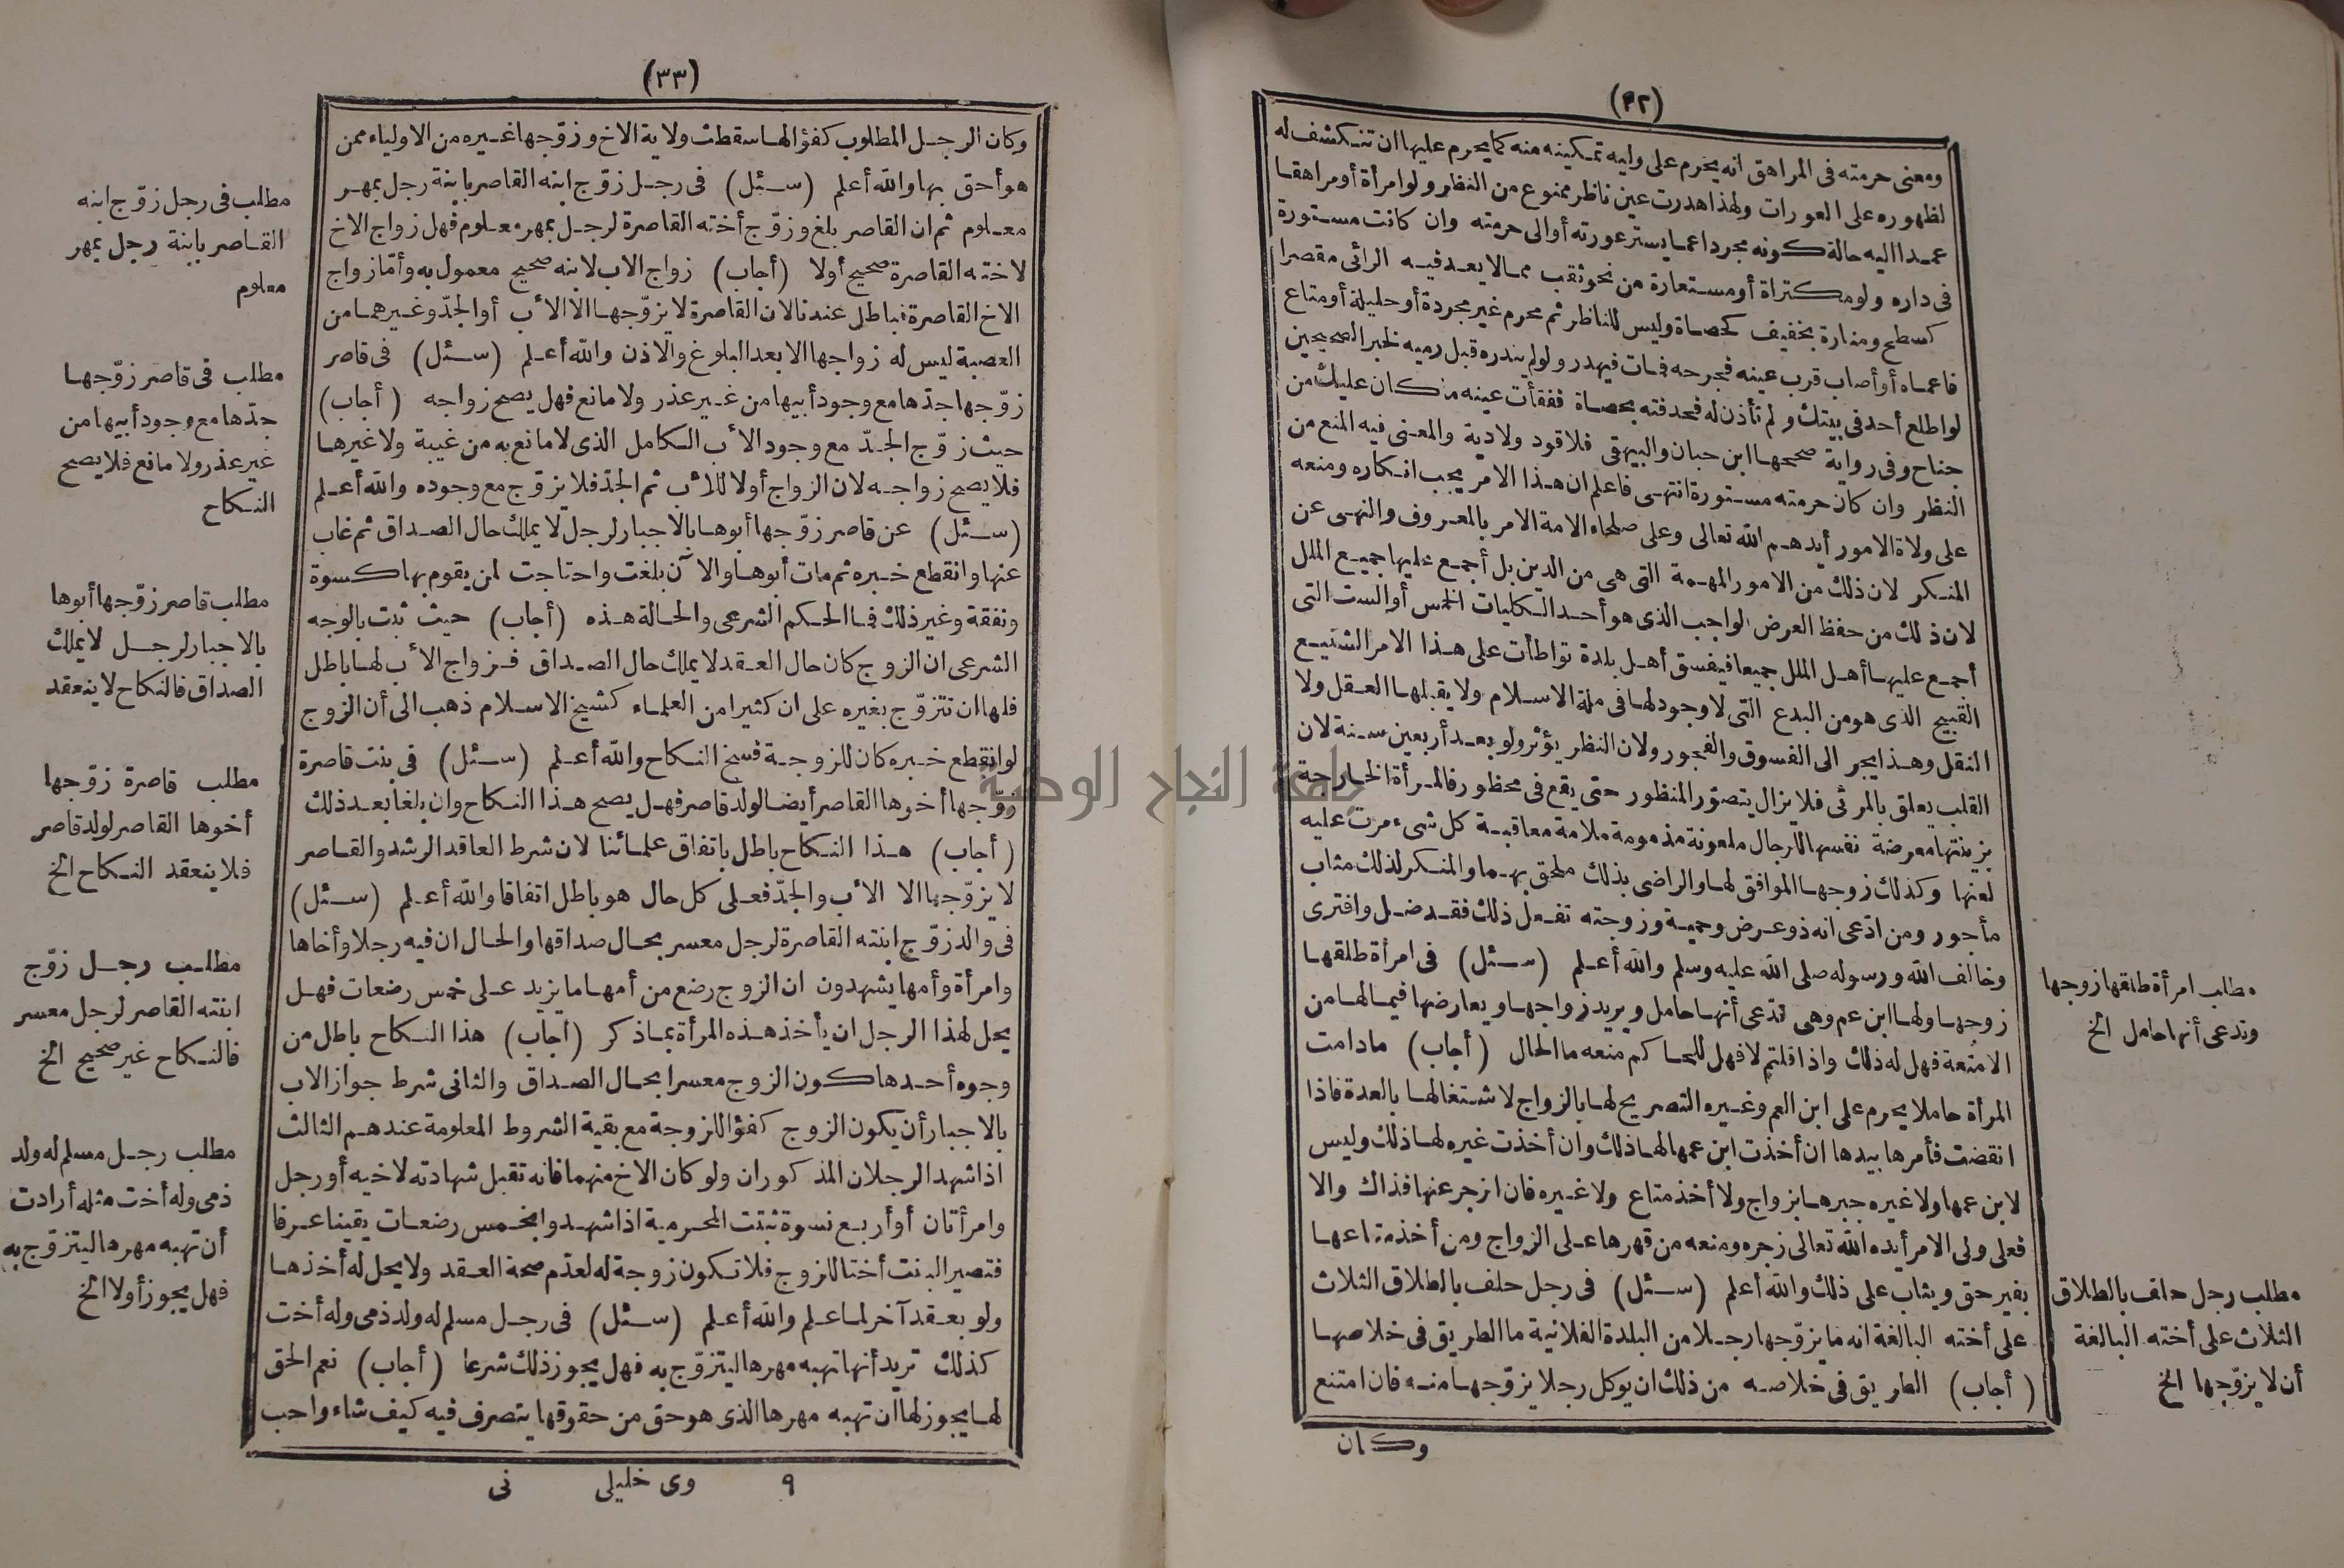 (٣٢)
ومعنى حرمته فى المراهق انه يحرم على وليه تمكينه منه كما يحرم عليها ان تنكشف له
لظهوره على العورات ولهذا هدرت عين ناظر ممنوع من النظر ولو امرأة أو مراهقا
عمدا اليه حالة كونه مجردا عما يستر عورته أو الى حرمته وان كانت مستورة
فى داره ولو مكتراة أو مستعارة من نحو ثقب مما لا يعد فيه الرائى مقصرا
كسطح ومنارة بخفيف كحصاة وليس للناظر ثم محرم غير مجردة أو حليلة أو متاع
فاعماه أو أصاب قرب عينه فجرحه فمات فيهدر ولو لم ينذره قبل رميه لخبر الصحيحين
لو اطلع أحد فى بيتك ولم تأذن له فحذفته بحصاة ففقأت عينه ما كان عليك من
جناح وفى رواية صححها ابن حبان والبيهقى فلا قود ولا دية والمعنى فيه المنع من
النظر وان كان حرمته مستورة انتهى فاعلم ان هذا الامر يجب انكاره ومنعه
على ولاة الامور أيدهم الله تعالى وعلى صلحاء الامة الامر بالمعروف والنهى عن
المنكر لان ذلك من الامور المهمة التى هى من الدين بل أجمع عليها جميع الملل
لان ذلك من حفظ العرض الواجب الذى هو أحد الكليات الخمس أو الست التى
أجمع عليها أهل الملل جميعا فيفسق أهل بلدة تواطأت على هذا الامر الشنيع
القبيح الذى هو من البدع التى لا وجود لها فى ملة الاسلام ولا يقبلها العقل ولا
النقل وهذا يجر الى الفسوق والفجور ولان النظر يؤثر ولو بعد أربعين سنة لان
القلب يعلق بالمرئى فلا يزال يتصور المنظور حتى يقع فى محظور فالمرأة الخارجة
بزينتها معرضة نفسها للرجال ملعونة مذمومة ملامة معاقبة كل شىء مرت عليه
لعنها وكذلك زوجها الموافق لها والراضى بذلك ملحق بهما والمنكر لذلك مثاب
مأجور ومن ادّعى انه ذو عرض وحمية وزوجته تفعل ذلك فقد ضل وافترى
وخالف الله ورسوله صلى الله عليه وسلم والله أعلم (سئل) فى امرأة طلقها
زوجها ولها ابن عم وهى تدّعى أنها حامل ويريد زواجها ويعارضها فيما لها من
الامتعة فهل له ذلك واذا قلتم لا فهل للحاكم منعه ما الحال (أجاب) ما دامت
المرأة حاملا يحرم على ابن العم وغيره التصريح لها بالزواج لاشتغالها بالعدة فاذا
انقضت فأمرها بيدها ان أخذت ابن عمها لها ذلك وان أخذت غيره لها ذلك وليس
لابن عمها ولا غيره جبرها بزواج ولا أخذ متاع ولا غيره فان انزجر عنها فذاك والا
فعلى ولى الامر أيده الله تعالى زجره ومنعه من قهرها على الزواج ومن أخذ متاعها
بغير حق ويثاب على ذلك والله أعلم (سئل) فى رجل حلف بالطلاق الثلاث
على أخته البالغة انه ما يزوّجها رجلا من البلدة الفلانية ما الطريق فى خلاصها
(أجاب) الطريق فى خلاصه من ذلك ان يوكل رجلا يزوّجها منه فان امتنع
وكان
مطلب امرأة طلقها زوجها
وتدعى أنها حامل الخ
مطلب رجل حلف بالطلاق
الثلاث على أخته البالغة
أن لا يزوّجها الخ
(٣٣)
وكان الرجل المطلوب كفؤا لها سقطت ولاية الاخ وزوّجها غيره من الاولياء ممن
هو أحق بها والله أعلم (سئل) فى رجل زوّج ابنه القاصر بابنة رجل بمهر
معلوم ثم ان القاصر بلغ وزوّج أخته القاصرة لرجل بمهر معلوم فهل زواج الاخ
لاخته القاصرة صحيح أولا (أجاب) زواج الاب لابنه صحيح معمول به وأمّا زواج
الاخ القاصرة فباطل عندنا لان القاصرة لا يزوّجها الا الأب أو الجدّ وغيرهما من
العصبة ليس له زواجها الا بعد البلوغ والاذن والله أعلم (سئل) فى قاصر
زوّجها جدّها مع وجود أبيها من غير عذر ولا مانع فهل يصح زواجه (أجاب)
حيث زوّج الجدّ مع وجود الأب الكامل الذى لا مانع به من غيبة ولا غيرها
فلا يصح زواجه لان الزواج أولا للأب ثم الجدّ فلا يزوّج مع وجوده والله أعلم
(سئل) عن قاصر زوّجها أبوها بالاجبار لرجل لا يملك حال الصداق ثم غاب
عنها وانقطع خبره ثم مات أبوها والآن بلغت واحتاجت لمن يقوم بها كسوة
ونفقة وغير ذلك فما الحكم الشرعى والحالة هذه (أجاب) حيث ثبت بالوجه
الشرعى ان الزوج كان حال العقد لا يملك حال الصداق فزواج الأب لها باطل
فلها ان تتزوّج بغيره على ان كثيرا من العلماء كشيخ الاسلام ذهب الى أن الزوج
لو انقطع خبره كان للزوجة فسخ النكاح والله أعلم (سئل) فى بنت قاصرة
زوّجها أخوها القاصر أيضا لولد قاصر فهل يصح هذا النكاح وان بلغا بعد ذلك
(أجاب) هذا النكاح باطل باتفاق علمائنا لان شرط العاقد الرشد والقاصر
لا يزوّجها الا الأب والجدّ فعلى كل حال هو باطل اتفاقا والله أعلم (سئل)
فى والد زوّج ابنته القاصرة لرجل معسر بحال صداقها والحال ان فيه رجلا وأخاها
وامرأة وأمها يشهدون ان الزوج رضع من أمها ما يزيد على خمس رضعات فهل
يحل لهذا الرجل ان يأخذ هذه المرأة بما ذكر (أجاب) هذا النكاح باطل من
وجوه أحدها كون الزوج معسرا بحال الصداق والثانى شرط جواز الاب
بالاجبار أن يكون الزوج كفؤا للزوجة مع بقية الشروط المعلومة عندهم الثالث
اذا شهد الرجلان المذكوران ولو كان الاخ منهما فانه تقبل شهادته لاخيه أو رجل
وامرأتان أو أربع نسوة ثبتت المحرمية اذا شهدوا بخمس رضعات يقينا عرفا
فتصير البنت أختا للزوج فلا تكون زوجة له لعدم صحة العقد ولا يحل له أخذها
ولو بعقد آخر لما علم والله أعلم (سئل) فى رجل مسلم له ولد ذمى وله أخت
كذلك تريد أنها تهبه مهرها ليتزوّج به فهل يجوز ذلك شرعا (أجاب) نعم الحق
لها يجوز لها ان تهبه مهرها الذى هو حق من حقوقها يتصرف فيه كيف شاء واجب
٩ وى خليلى نى
مطلب فى رجل زوّج ابنه
القاصر بابنة رجل بمهر
معلوم
مطلب فى قاصر زوّجها
جدّها مع وجود أبيها من
غير عذر ولا مانع فلا يصح
النكاح
مطلب قاصر زوّجها أبوها
بالاجبار لرجل لا يملك
الصداق فالنكاح لا ينعقد
مطلب قاصرة زوّجها
أخوها القاصر لولد قاصر
فلا ينعقد النكاح الخ
مطلب رجل زوّج
ابنته القاصر لرجل معسر
فالنكاح غير صحيح الخ
مطلب رجل مسلم له ولد
ذمى وله أخت مثله أرادت
أن تهبه مهرها ليتزوّج به
فهل يجوز أولا الخ
جامعة النجاح الوطنية